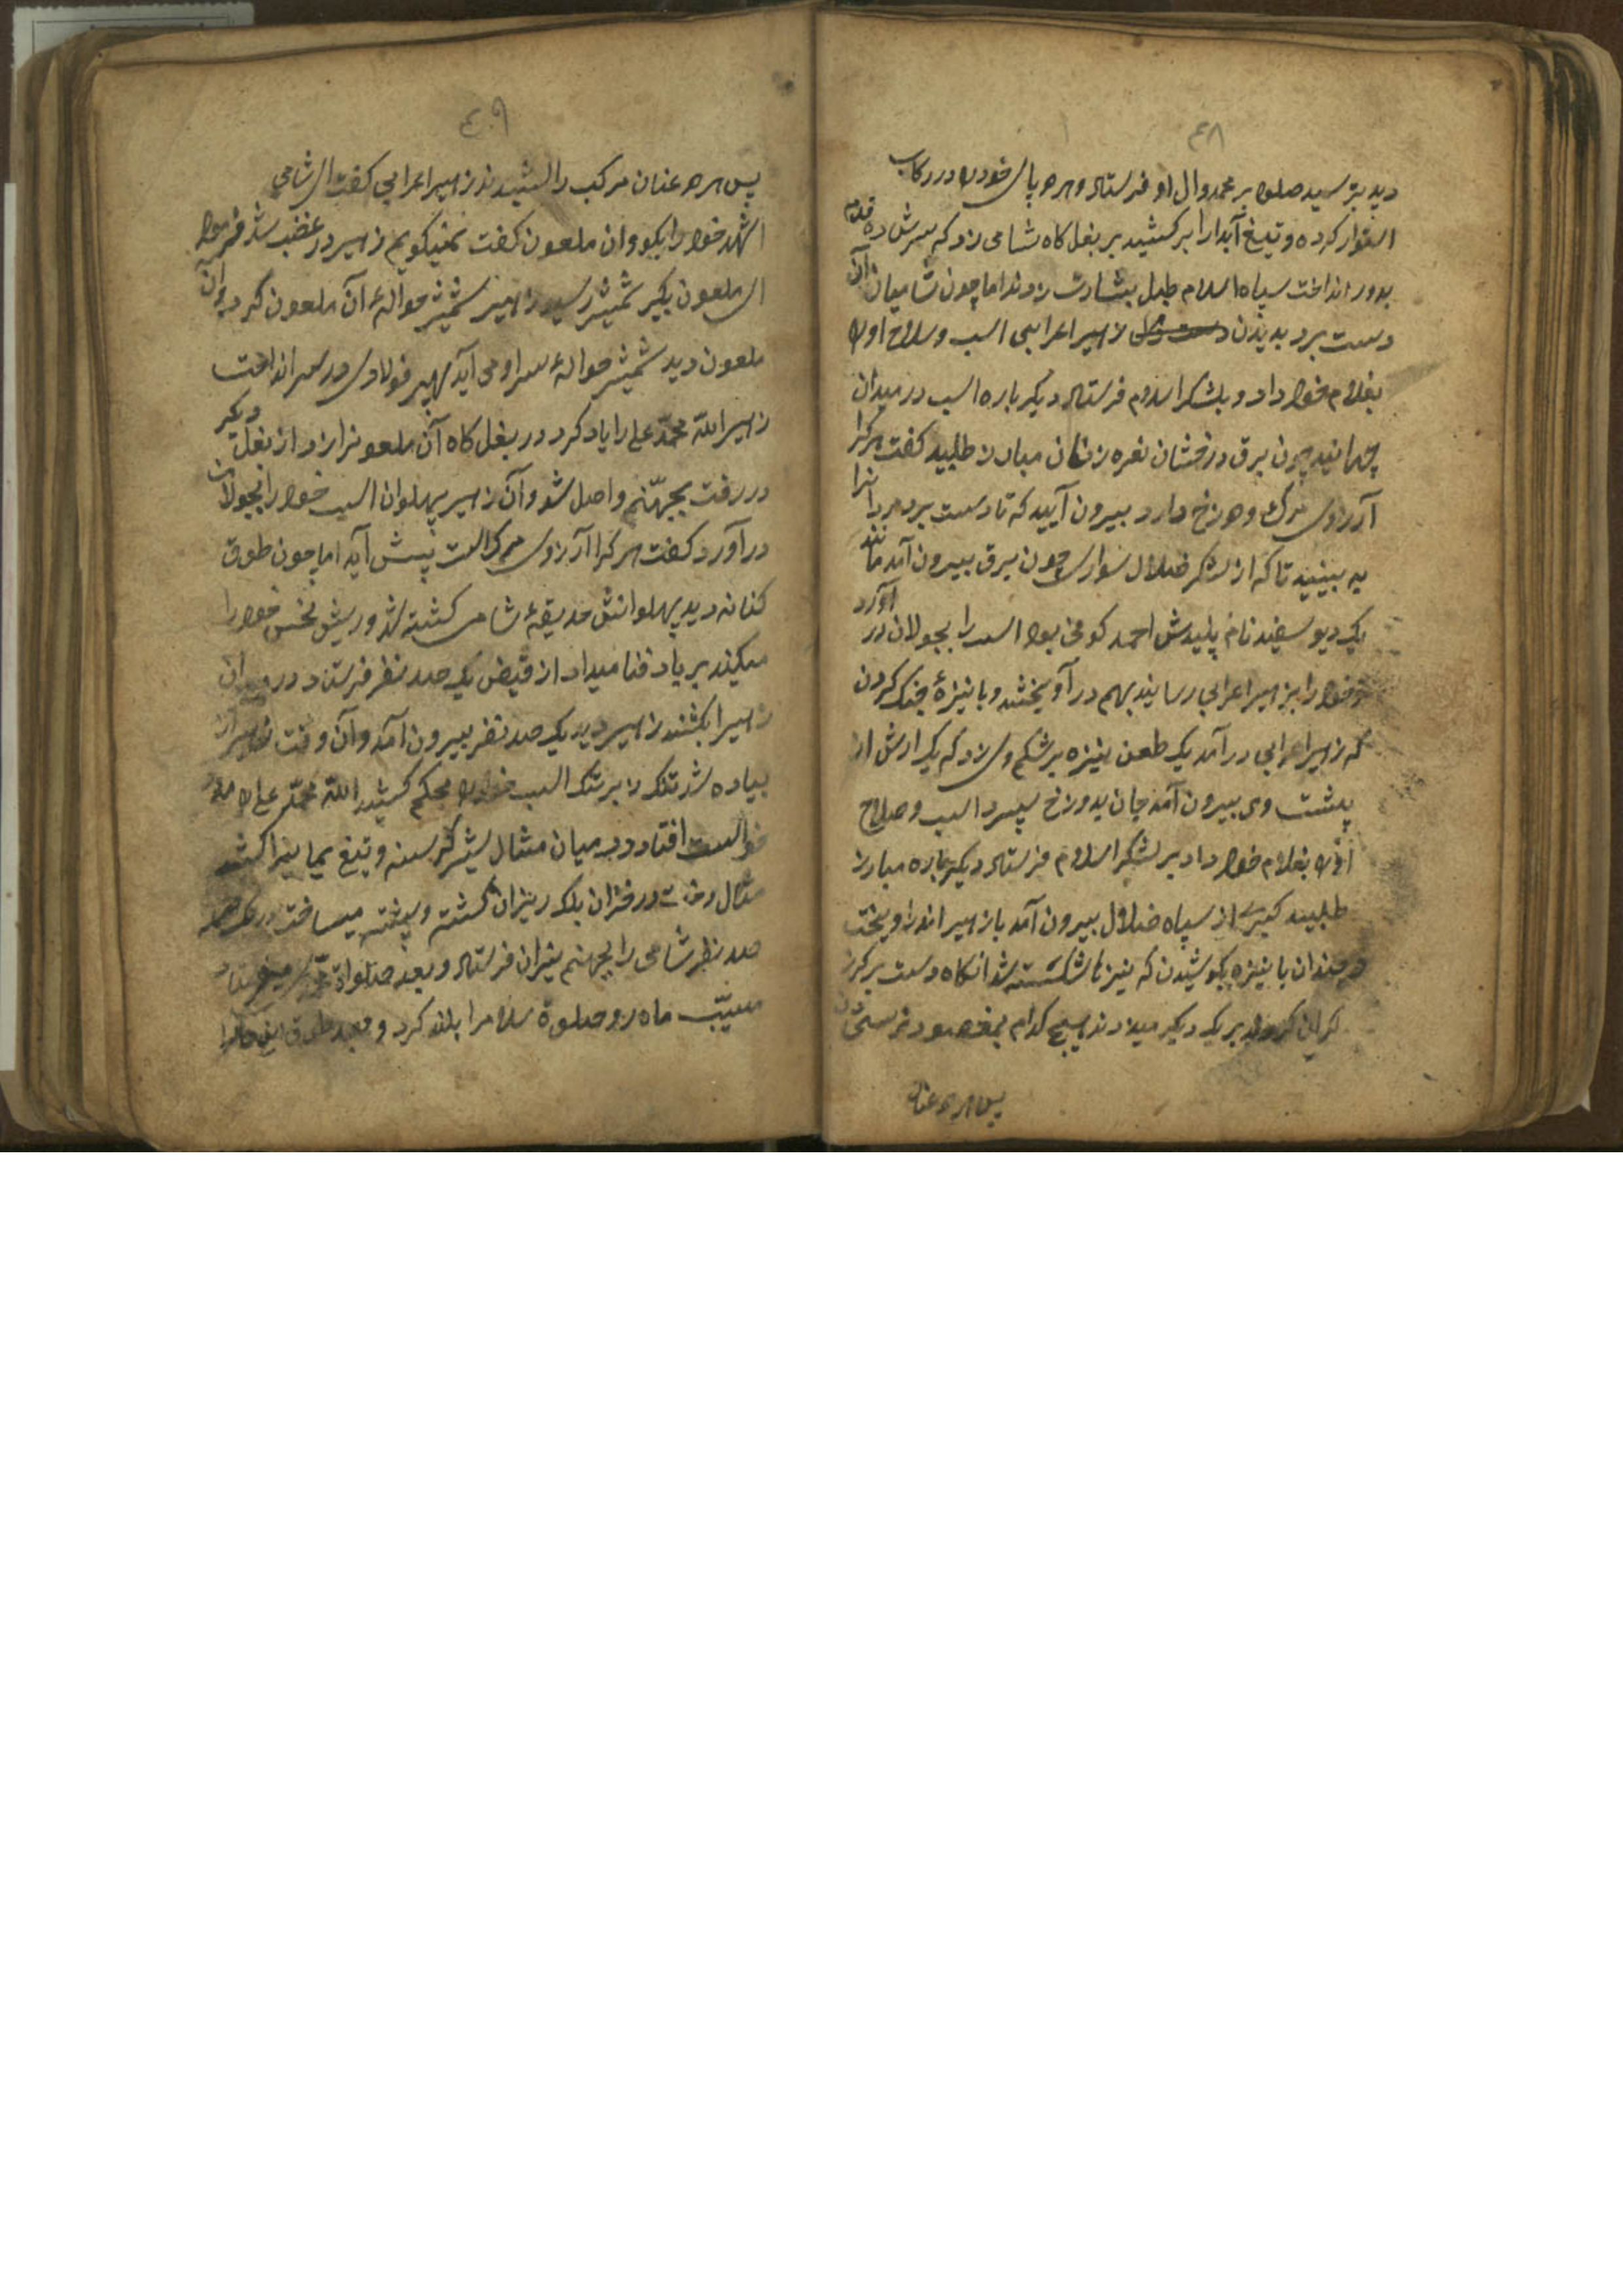 ۴۸
دید بترسید صلوة بر محمد وال او فرستاد و هر دو پای خود را در رکاب
استوار کرده و تیغ آبدار را برکشید بر بغل کاه شامی زد که سرش ده قدم
بدور انداخت سپاه اسلام طبل بشارت زدند اما چون شامیان آن
دست برد بدیدن زهیر اعرابی اسب و سلاح اورا
بغلام خود داد و بلشکر اسلام فرستاد دیکر باره اسب در میدان
چهانید چون برق درخشان نعره زنان مبارز طلبید کفت هرکرا
آرزوی مرک و دوزخ دارد بیرون آیید که تا دست برد مردانرا
به بینید تا که از لشکر ضلال سواری چون برق بیرون آمد مانند
یک دیو سفید نام پلیدش احمد کوفی بود اسب را بجولان در آورد
و خود را بزهیر اعرابی رسانید بهم در آویختند و با نیزهٔ جنک کردن
که زهیر اعرابی در آمد یک طعن نیزه بر شکم وی زد که یک ارش از
پشت وی بیرون آمد جان بدوزخ سپرد اسب و صلاح
اورا بغلام خود داد بر لشکر اسلام فرستاد دیکر باره مبارز
طلبید کبری از سپاه ضلال بیرون آمد با زهیر اندر آویخت
و چندان با نیزه بکوشیدن که نیزها شکسته شد انکاه دست بر کرز
کران کردند بر یک دیکر میزدند هیچ کدام بمقصود نرسیدن
پس هر دو عنان
۴۹
پس هر دو عنان مرکب را کشیدند زهیر اعرابی کفت ای شامی
اشهد خود را بکو و ان ملعون کفت نمیکویم زهیر در غضب شد فرمود
ای ملعون بکیر شمشیر رسید زهیر شمشیر حوالهٔ آن ملعون کرد و آن
ملعون دید شمشیر حوالهٔ سر او می آید سپر فولادی در سر انداخت
زهیر الله محمد علی را یاد کرد در بغل کاه آن ملعون را زد از بغل دیکر
در رفت بجهنم واصل شد و آن زهیر پهلوان اسب خود را بجولان
در آورد کفت هر کرا آرزوی مرک است پیش آید اما چون طوق
کنانه دید پهلوانش حدیقهٔ شامی کشته شد و ریش نحس خود را
میکند بر باد فنا میداد از قیض یک صد نفر فرستاد در میدان
زهیر را بکشند زهیر دید یک صد نفر بیرون آمد و آن وقت زهیر از
پیاده شد تنک زبر تنک اسب خود را محکم کشید الله محمد علی را مدد
خواست افتاد در میان مثال شیر کرسنه و تیغ یمانی را کشید
مثال درخت در خزان بلک ریزان کشته و پشته میساخت
صد نفر شامی را بجهنم نیران فرستاد و بعد صلواة
مسیّب ماه رو صلوة سلام را بلند کرد و